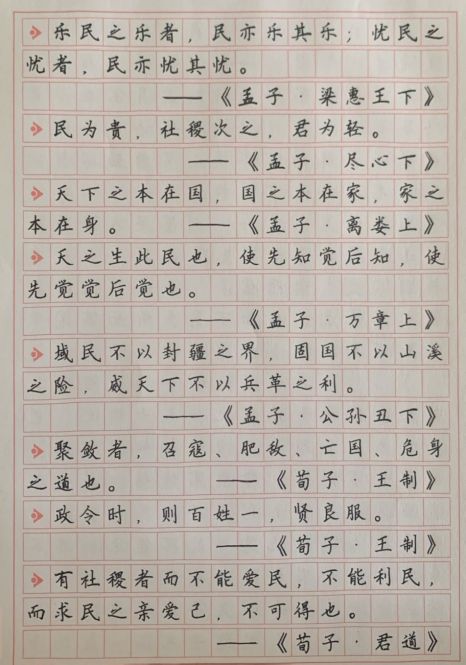 乐民之乐者，民亦乐其乐；忧民之
忧者，民亦忧其忧。
——《孟子·梁惠王下》
民为贵，社稷次之，君为轻。
——《孟子·尽心下》
天下之本在国，国之本在家，家之
本在身。 ——《孟子·离娄上》
天之生此民也，使先知觉后知，使
先觉觉后觉也。
——《孟子·万章上》
域民不以封疆之界，固国不以山溪
之险，威天下不以兵革之利。
——《孟子·公孙丑下》
聚敛者，召寇、肥敌、亡国、危身
之道也。 ——《荀子·王制》
政令时，则百姓一，贤良服。
——《荀子·王制》
有社稷者而不能爱民，不能利民，
而求民之亲爱己，不可得也。
——《荀子·君道》